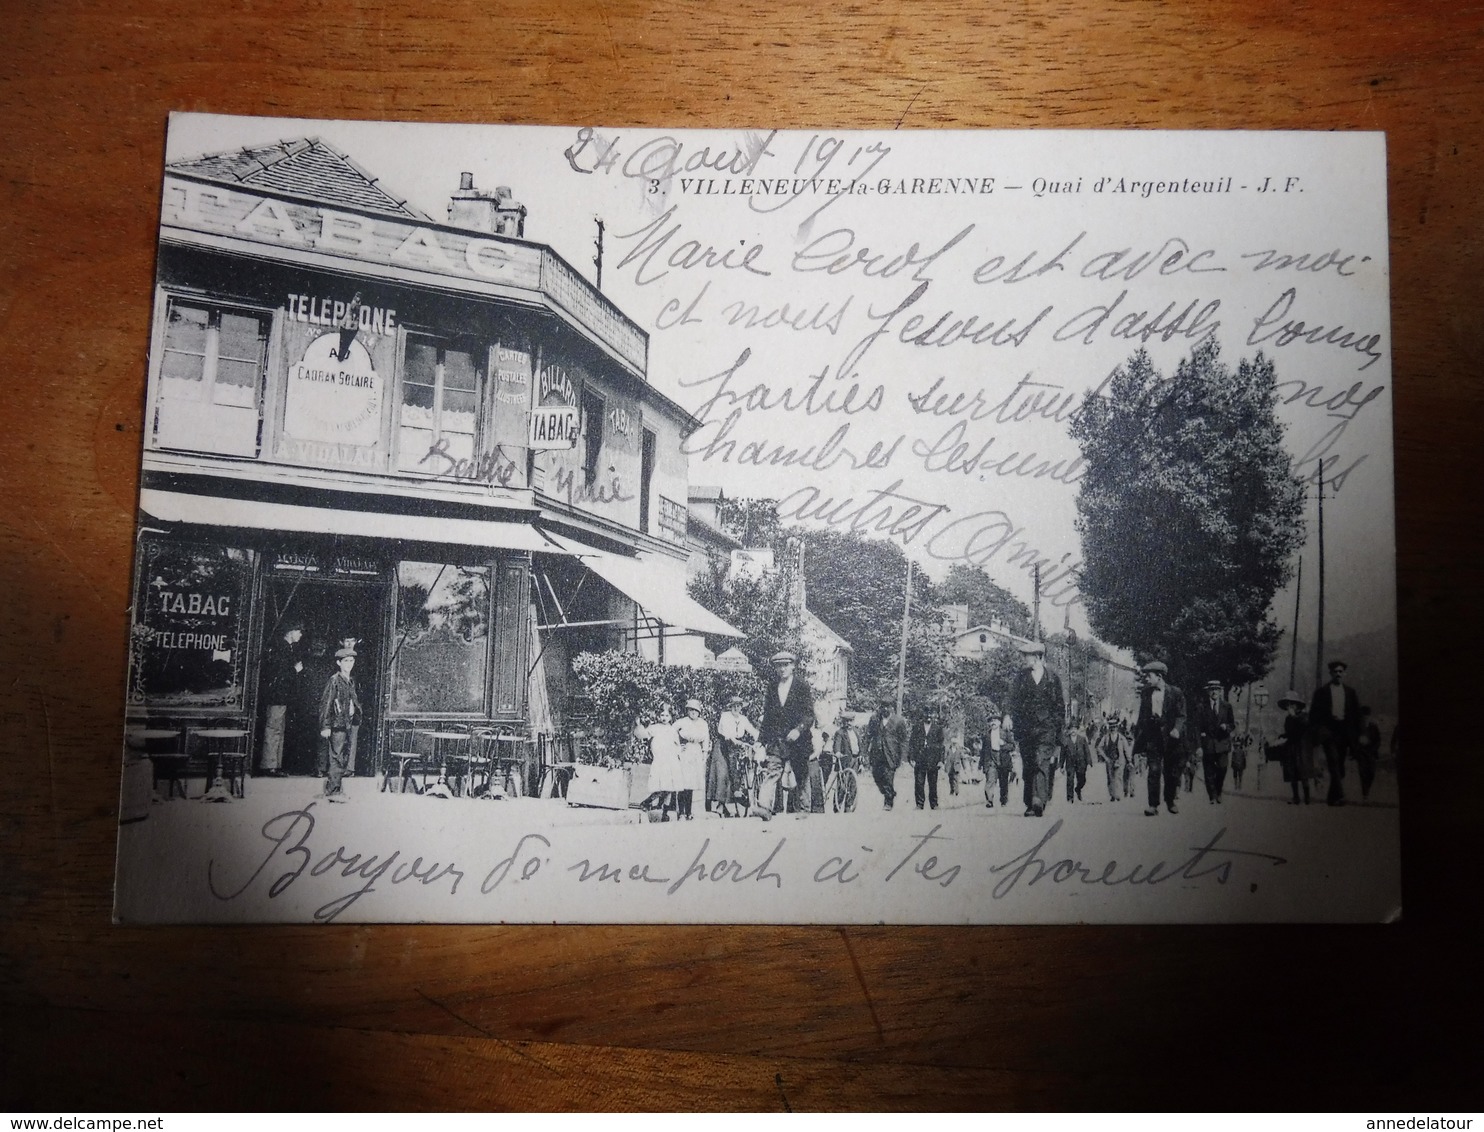 24 Aout 1917
3. VILLENEUVE-la-GARENNE — Quai d'Argenteuil - J. F.
Marie Corol est avec moi
et nous fesons d'assez bonnes
parties surtout nos
chambres les une les
autres Amitié
TABAC
TÉLÉPHONE
AU
CADRAN SOLAIRE
A. VIDALAIN
CARTES
POSTALES
ILLUSTRÉES
BILLARD
TABAC
TABAC
Berthe Marie
TABAC
TELEPHONE
Bonjour de ma part à tes parents.
delcampe.net
annedelatour